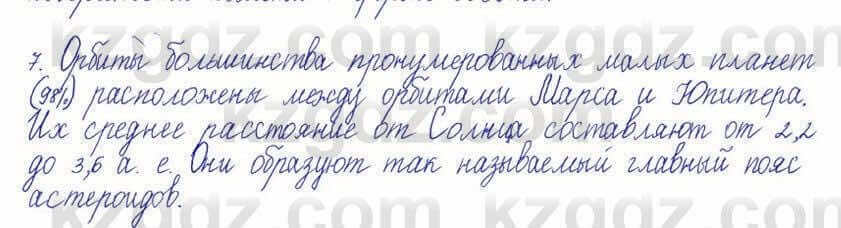 7. Орбиты большинства пронумерованных малых планет
(98%) расположены между орбитами Марса и Юпитера.
Их среднее расстояние от Солнца составляют от 2,2
до 3,6 а. е. Они образуют так называемый главный пояс
астероидов.